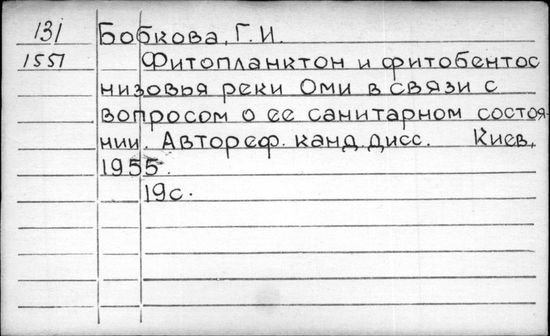 131 Бобкова, Г.И.
1551 Фитопланктон и фитобентос
низовья реки Оми в связи с
вопросом о ее санитарном состоя-
нии. Автореф. канд. дисс. Киев,
1955.
19с.